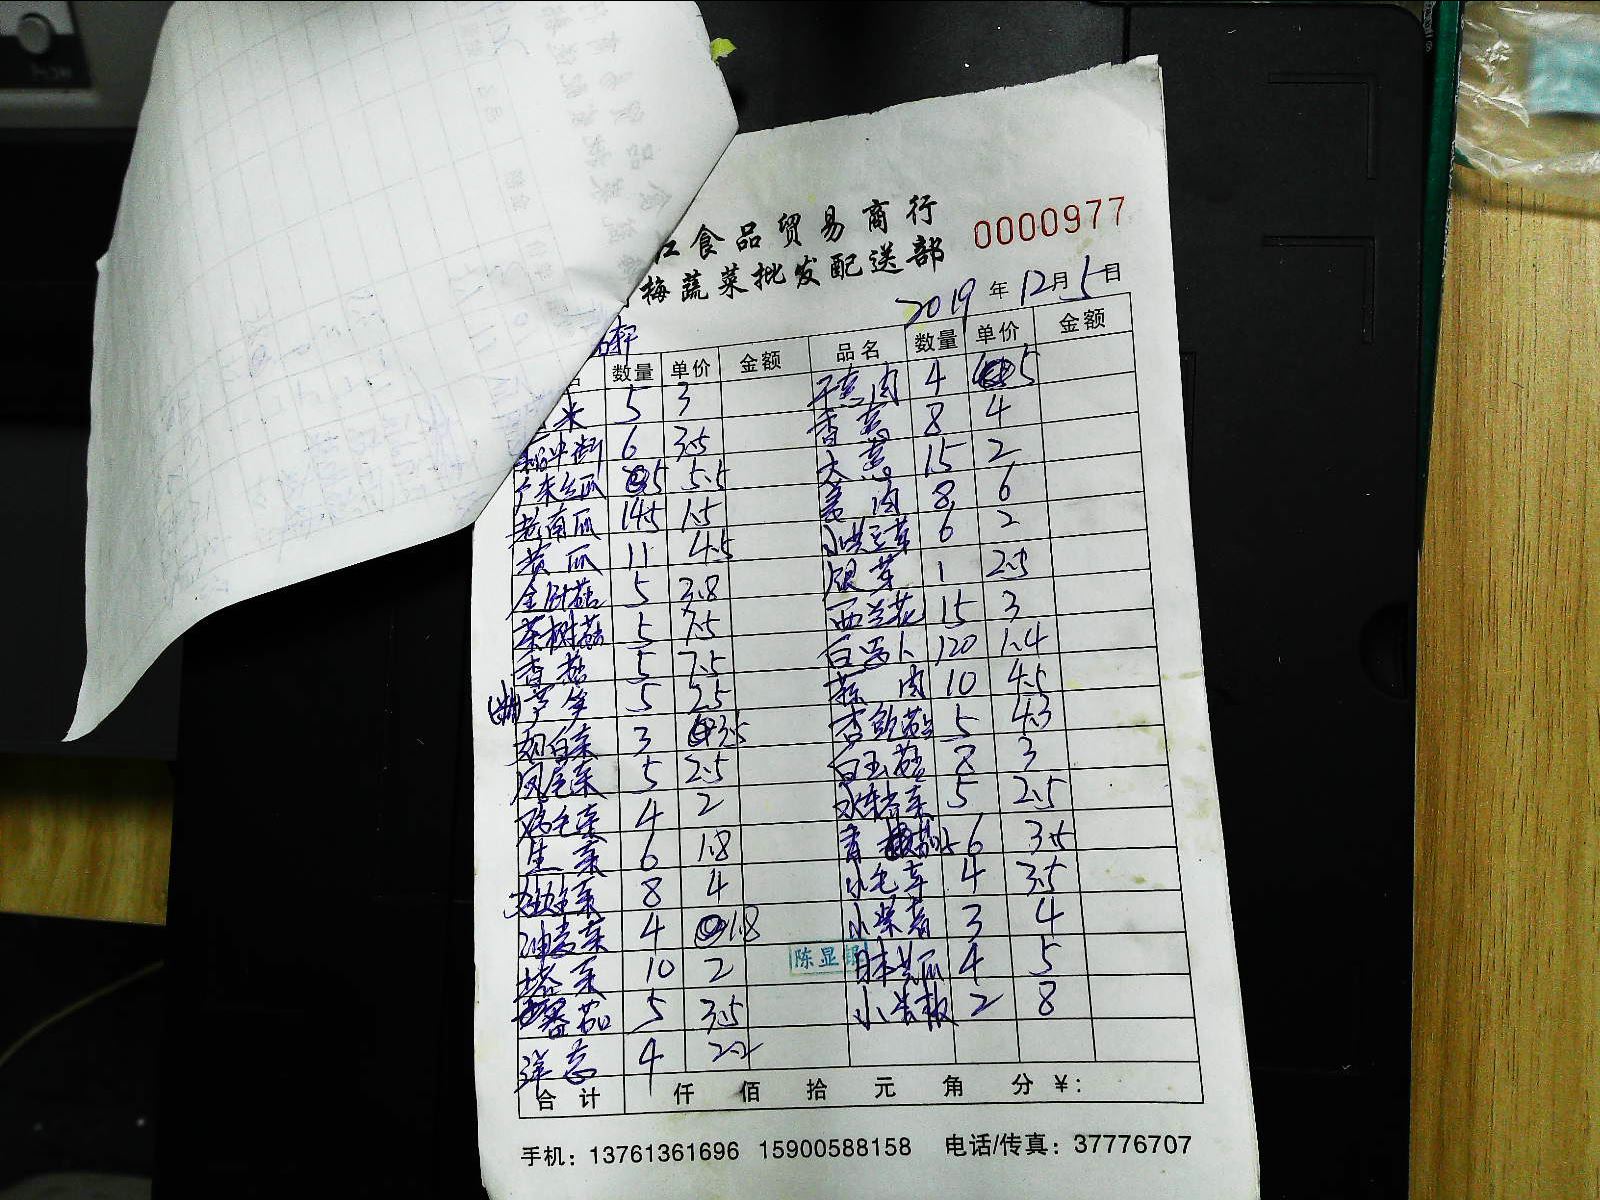 江食品贸易商行
梅蔬菜批发配送部
0000977
2019年12月5日
轩
数量 单价 金额 品名 数量 单价 金额
米 5 3 肉 4 5
6 3.5 香葱 8 4
广东丝瓜 5 5.5 大葱 15 2
老南瓜 14.5 1.5 姜肉 8 6
黄瓜 11 4.5 小黄豆芽 6 2
金针菇 5 3.8 银芽 1 2.5
茶树菇 5 7.5 西兰花 15 3
香菇 5 7.5 白萝卜 120 1.4
芦笋 5 25 蒜肉 10 4.5
娃白菜 3 3.5 杏鲍菇 5 4.3
凤尾菜 5 2.5 白玉菇 8 3
鸡毛菜 4 2 水 菜 5 2.5
生菜 6 1.8 青 6 3.5
8 4 小毛 4 3.5
油麦菜 4 1.8 小 3 4
塔菜 10 2 陈显 日本 瓜 4 5
番茄 5 3.5 小 2 8
洋葱 4 2.2
合计 仟 佰 拾 元 角 分 ¥:
手机: 13761361696 15900588158 电话/传真: 37776707